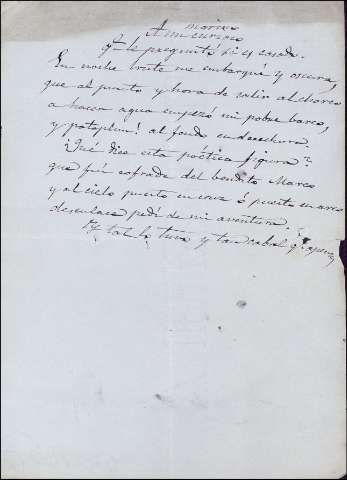 marino
A un curioso
Que le preguntó si es casado.
En noche bruta me embarqué y oscura,
que al punto y hora de salir al charco
a hacer agua empezó mi pobre barco,
y pataplum! al fondo en derechura.
¿Qué dice esta poética figura?
que fuí cofrade del bendito Marco
y al cielo puesto en cruz ó puesto en arco
desenlace pedí de mi aventura.
Y tal la tuve y tan cabal q.